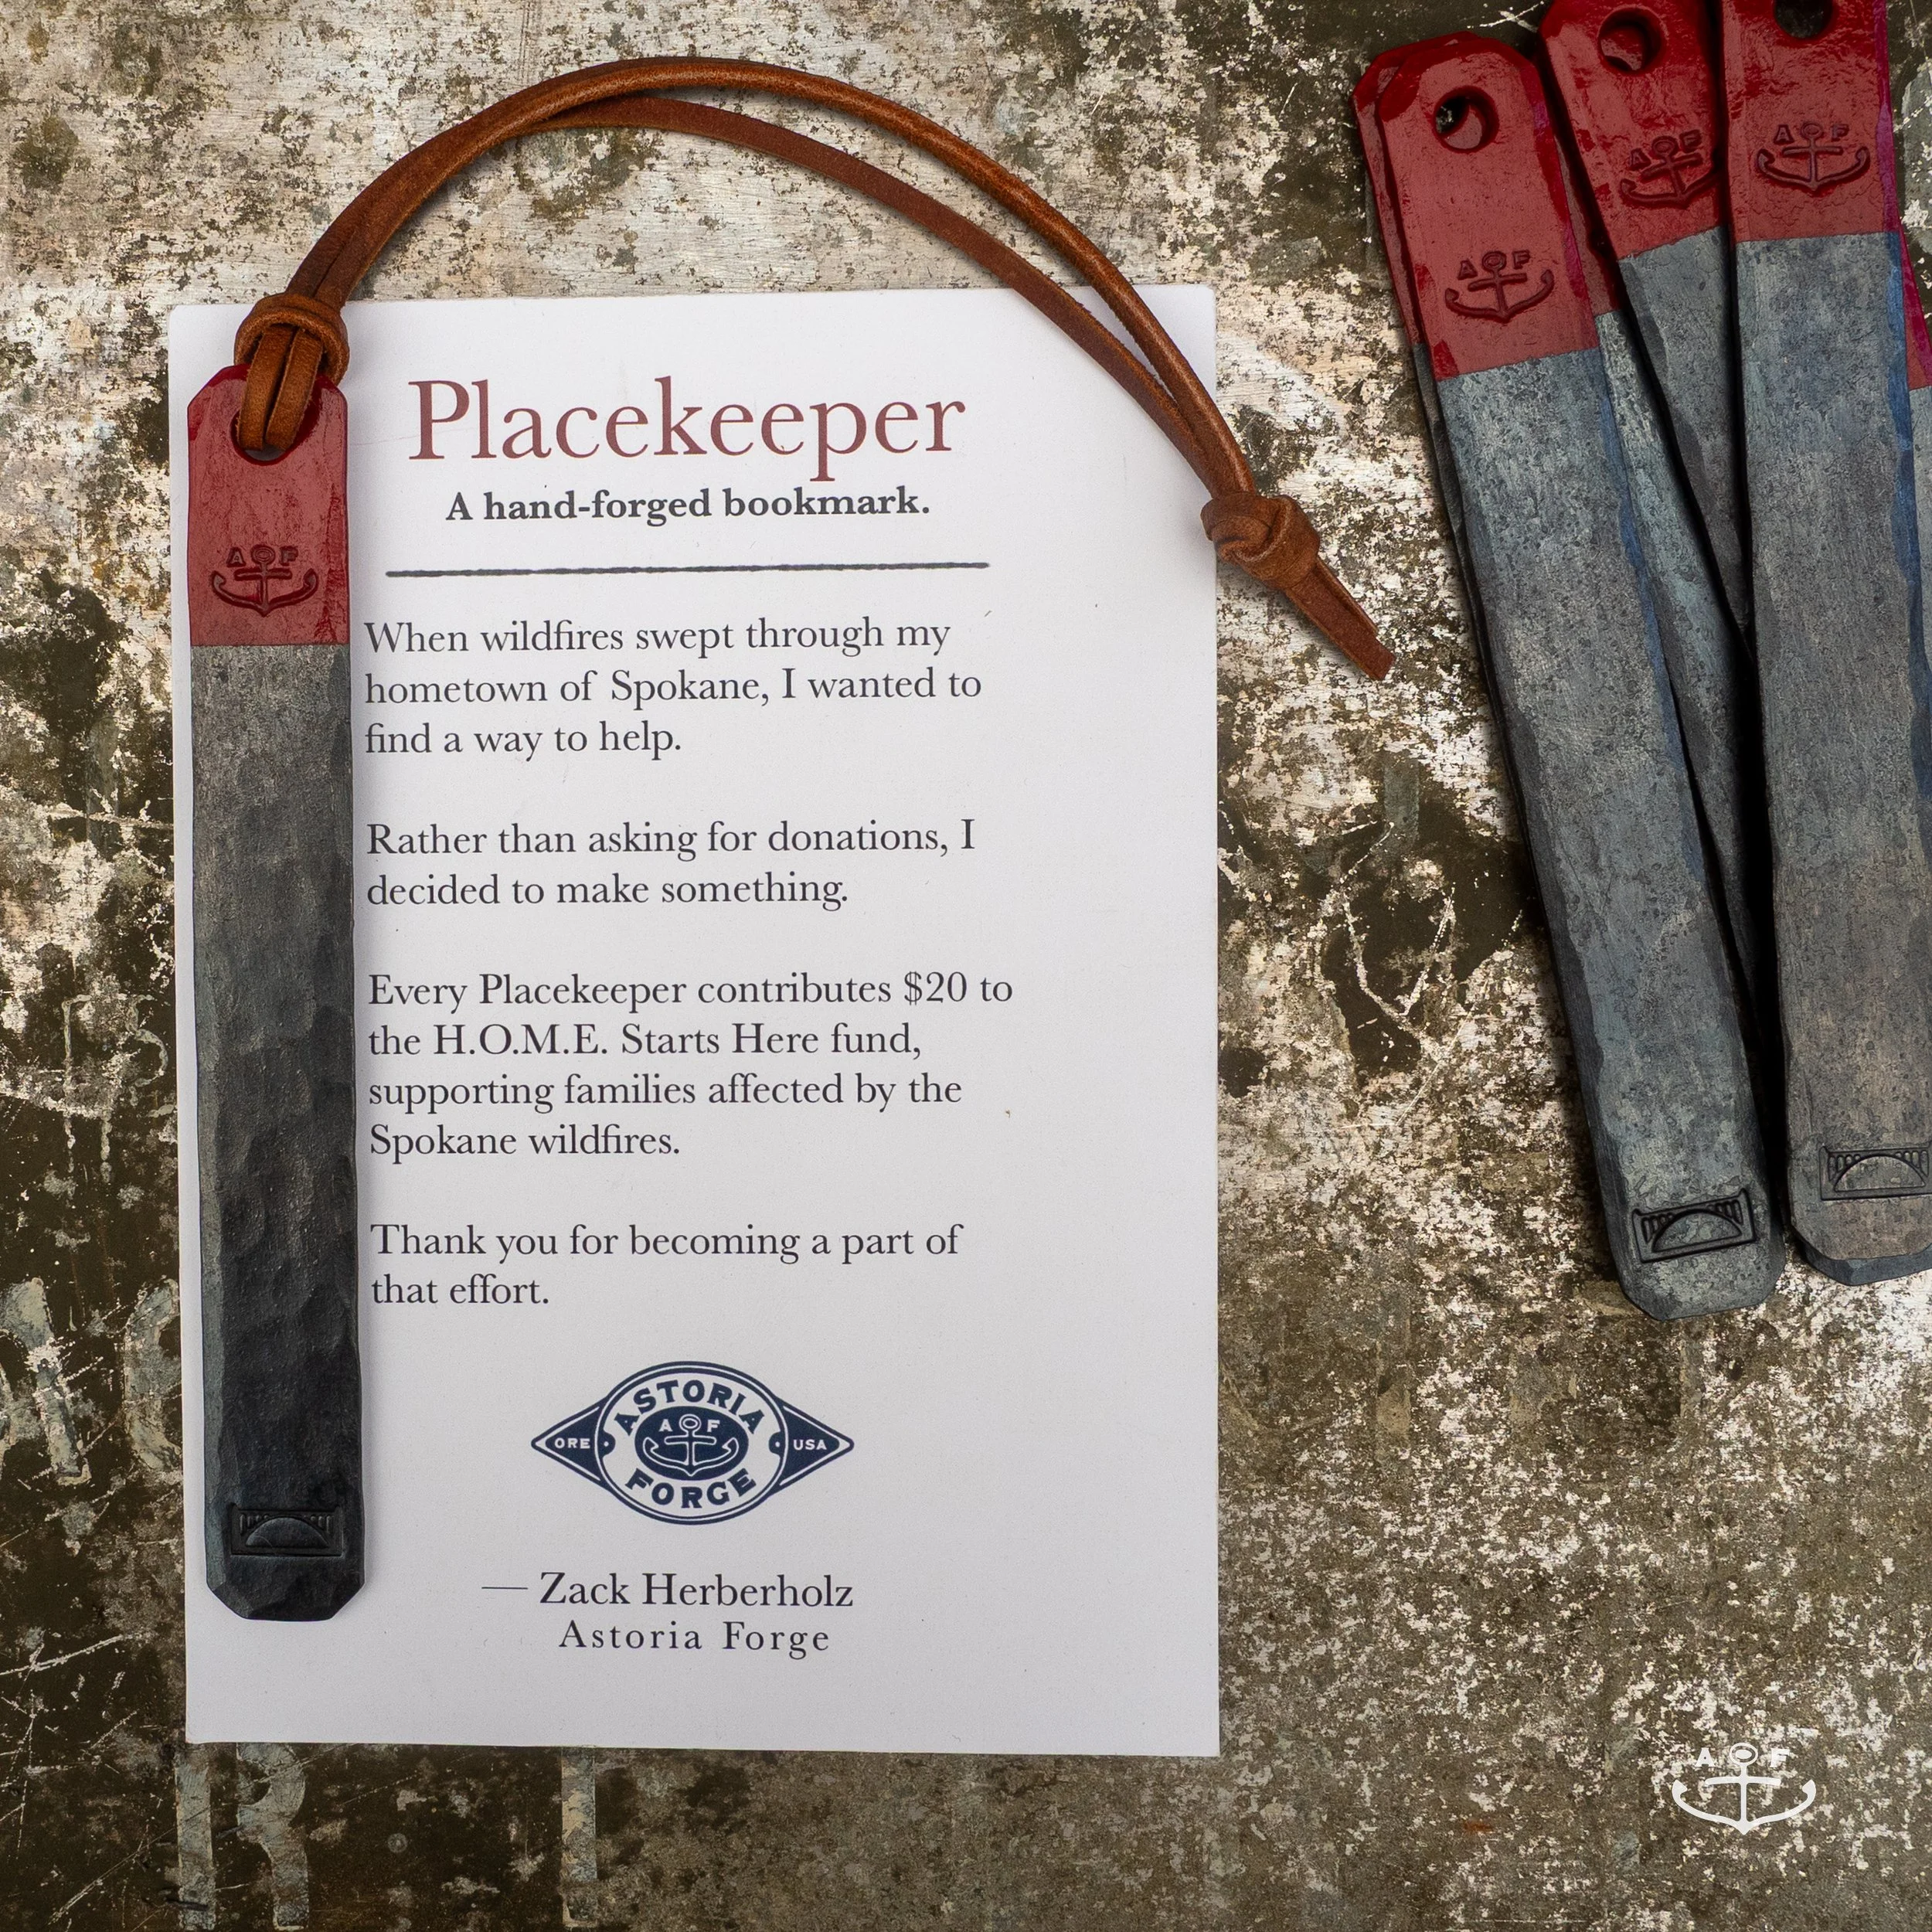 Placekeeper
A hand-forged bookmark.
When wildfires swept through my
hometown of Spokane, I wanted to
find a way to help.
Rather than asking for donations, I
decided to make something.
Every Placekeeper contributes $20 to
the H.O.M.E. Starts Here fund,
supporting families affected by the
Spokane wildfires.
Thank you for becoming a part of
that effort.
ASTORIA
A F
ORE USA
FORGE
— Zack Herberholz
Astoria Forge
A F
A F
A F
A F
A F